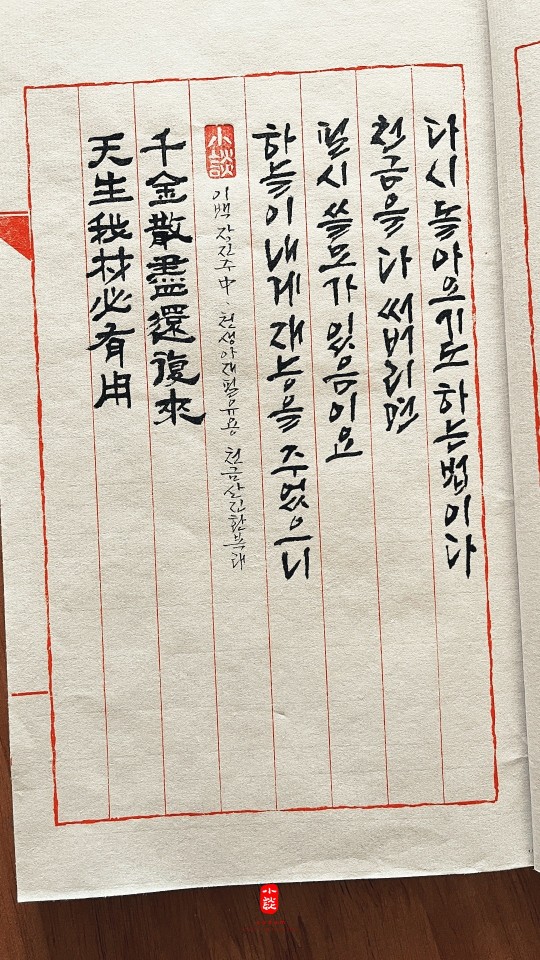 天生我材必有用
千金散盡還復來
小談
이백 장진주 中, 천생아재필유용 천금산진환부래
하늘이 내게 재능을 주었으니
필시 쓸모가 있음이요
천금을 다 써버리면
다시 돌아오기도 하는 법이다
小談